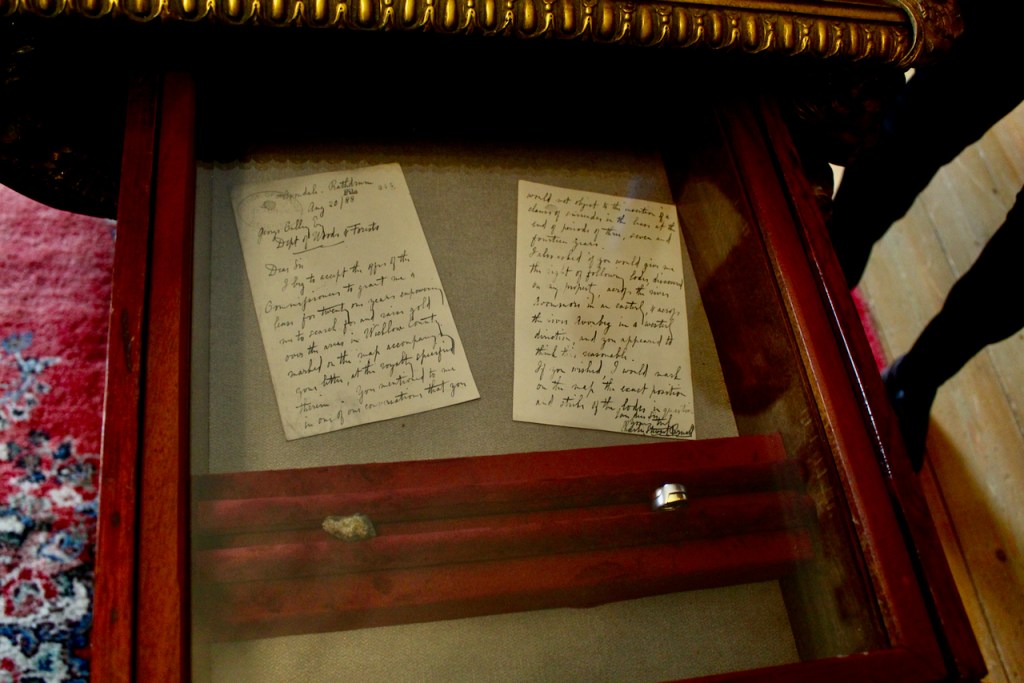 Avondale. Rathdrum
Aug 20/88
George Culley
Dept of Woods & Forests
Dear Sir
I beg to accept the offer of the
Commissioners to grant me a
lease for twenty one years empowering
me to search for and raise gold
over the area in Wicklow County
marked on the map accompanying
your letter, at the royalty specified
therein. You mentioned to me
in one of our conversations that you
would not object to the insertion of a
clause of surrender in the lease at the
end of periods of three, seven and
fourteen years.
I also asked if you would give me
the right of following lodes discovered
on my property across the river
in an easterly, & across
the river in a westerly
direction, and you appeared to
think this reasonable.
If you wished I would mark
on the map the exact position
and strike of the lodes in question
Yours truly
Charles Stewart Parnell